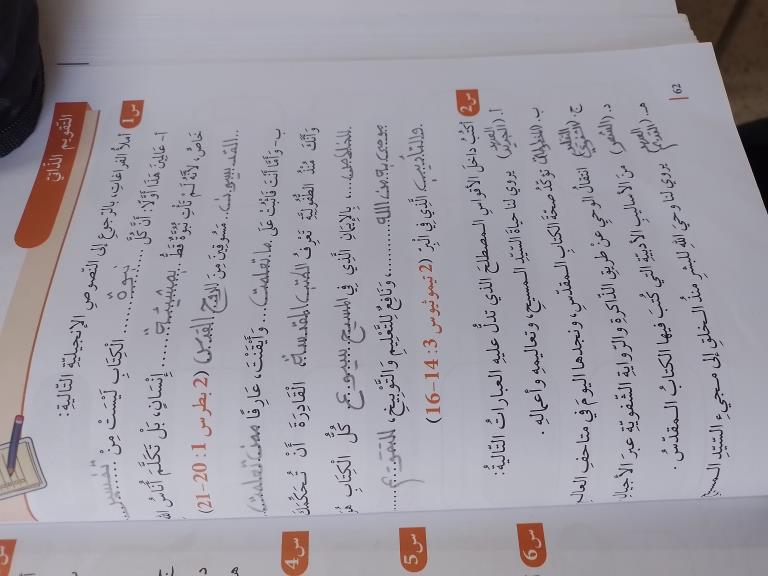 التقويم الذاتي
س1 أملأ الفراغات، بالرجوع إلى النصوص الإنجيلية التالية:
أ- عَالِمِينَ هَذَا أَوَّلًا: أَنَّ كُلَّ نبوة الْكِتَابِ لَيْسَتْ مِنْ تفسير
خَاصٍّ لِأَنَّهُ لَمْ تَأْتِ نُبُوَّةٌ قَطُّ بمشيئة إِنْسَانٍ، بَلْ تَكَلَّمَ أُنَاسُ اللهِ
القديسون مَسُوقِينَ مِنَ الروح القدس (2 بطرس 1: 20-21)
ب- وَأَمَّا أَنْتَ فَاثْبُتْ عَلَى ما تعلمت وَأَيْقَنْتَ، عَارِفًا ممن تعلمت
وَأَنَّكَ مُنْذُ الطُّفُولِيَّةِ تَعْرِفُ الكتب المقدسة الْقَادِرَةَ أَنْ تُحَكِّمَكَ
للخلاص، بِالْإِيمَانِ الَّذِي فِي المسيح يسوع كُلُّ الْكِتَابِ هُوَ
موحى به من الله، وَنَافِعٌ لِلتَّعْلِيمِ وَالتَّوْبِيخِ، للتقويم
والتأديب الَّذِي فِي الْبِرِّ (2 تيموثوس 3: 14-16)
س2 أكتُبُ داخلَ الأقواسِ المصطلحَ الذي تدلُّ عليهِ العباراتُ التاليةُ:
أ. (العهد الجديد) يروي لنا حياةَ السيّدِ المسيحِ، وتعاليمِهِ وأعمالِهِ.
ب. (المخطوطات) تؤكّدُ صحّةَ الكتابِ المقدّسِ، ونجدها اليومَ في متاحفِ العالم
ج. (التقليد الشفوي) انتقالُ الوحيِ عن طريقِ الذّاكرةِ والرّوايةِ الشّفويّةِ عبرَ الأجيال
د. (الشعر) منَ الأساليبِ الأدبيّةِ التي كُتبَ فيها الكتابُ المقدّسُ.
هـ. (العهد القديم) يروي لنا وحيَ اللهِ للبشرِ منذُ الخلقِ إلى مجيءِ السيّدِ
62
س4
س5
س6